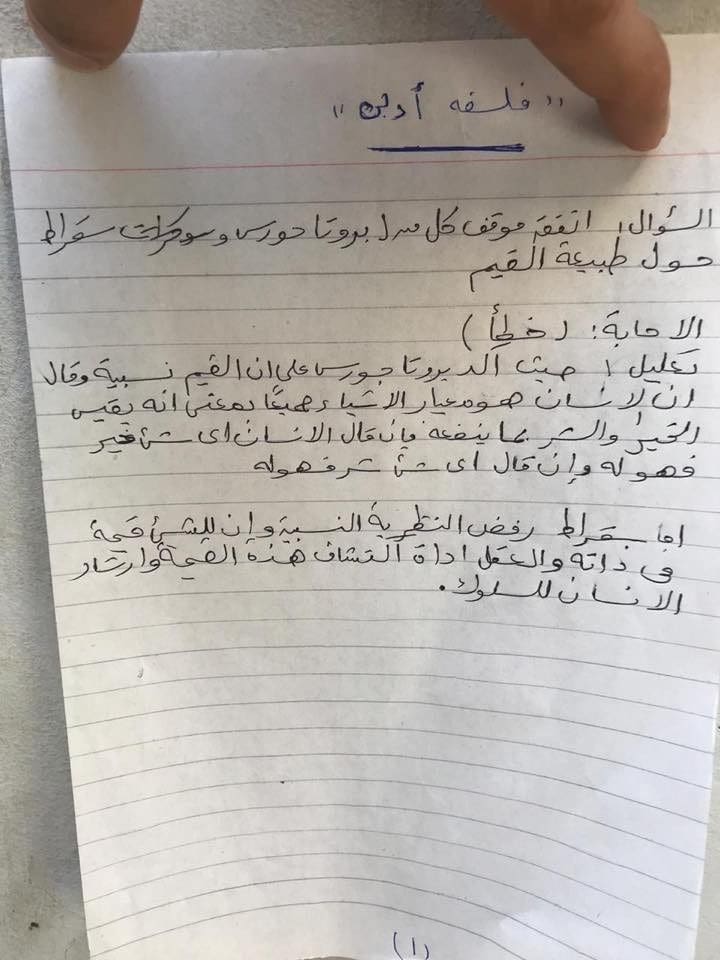 " فلسفه أدبى "
السؤال: اتفقت موقف كل من بروتاجورس و سقراط
حول طبيعة القيم
الاجابة: (خطأ)
تعليل: حيث اكد بروتاجورس على ان القيم نسبية وقال
ان الانسان هو معيار الاشياء جميعًا بمعنى انه يقيس
الخير والشر بما ينفعه فإن قال الانسان اى شئ خير
فهو له وإن قال اى شئ شر فهو له
اما سقراط رفض النظرية النسبية وإن للشئ قيمة
فى ذاته والعقل اداة اكتشاف هذه القيمة وارشاد
الانسان للسلوك.
(١)